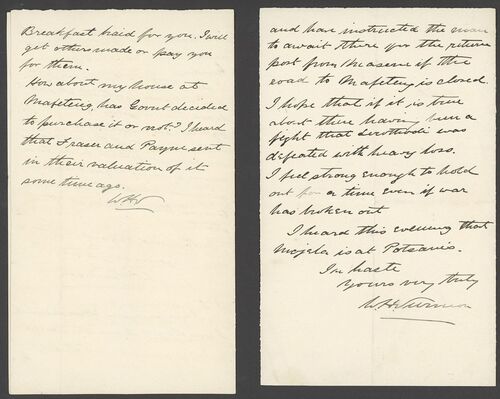 Breakfast paid for you. I will
get others made or pay you
for them.
How about my house at
Mafeteng, has Govnt decided
to purchase it or not? I heard
that Fraser and Payne sent
in their valuation of it
some time ago.
and have instructed the man
to await there for the return
post from Maseru if the
road to Mafeteng is closed.
I hope that if it is true
about there having been a
fight that Lerothodi was
defeated with heavy loss.
I feel strong enough to hold
out for a time even if war
has broken out
I heard this evening that
is at Potsanis.
In haste
Yours very truly